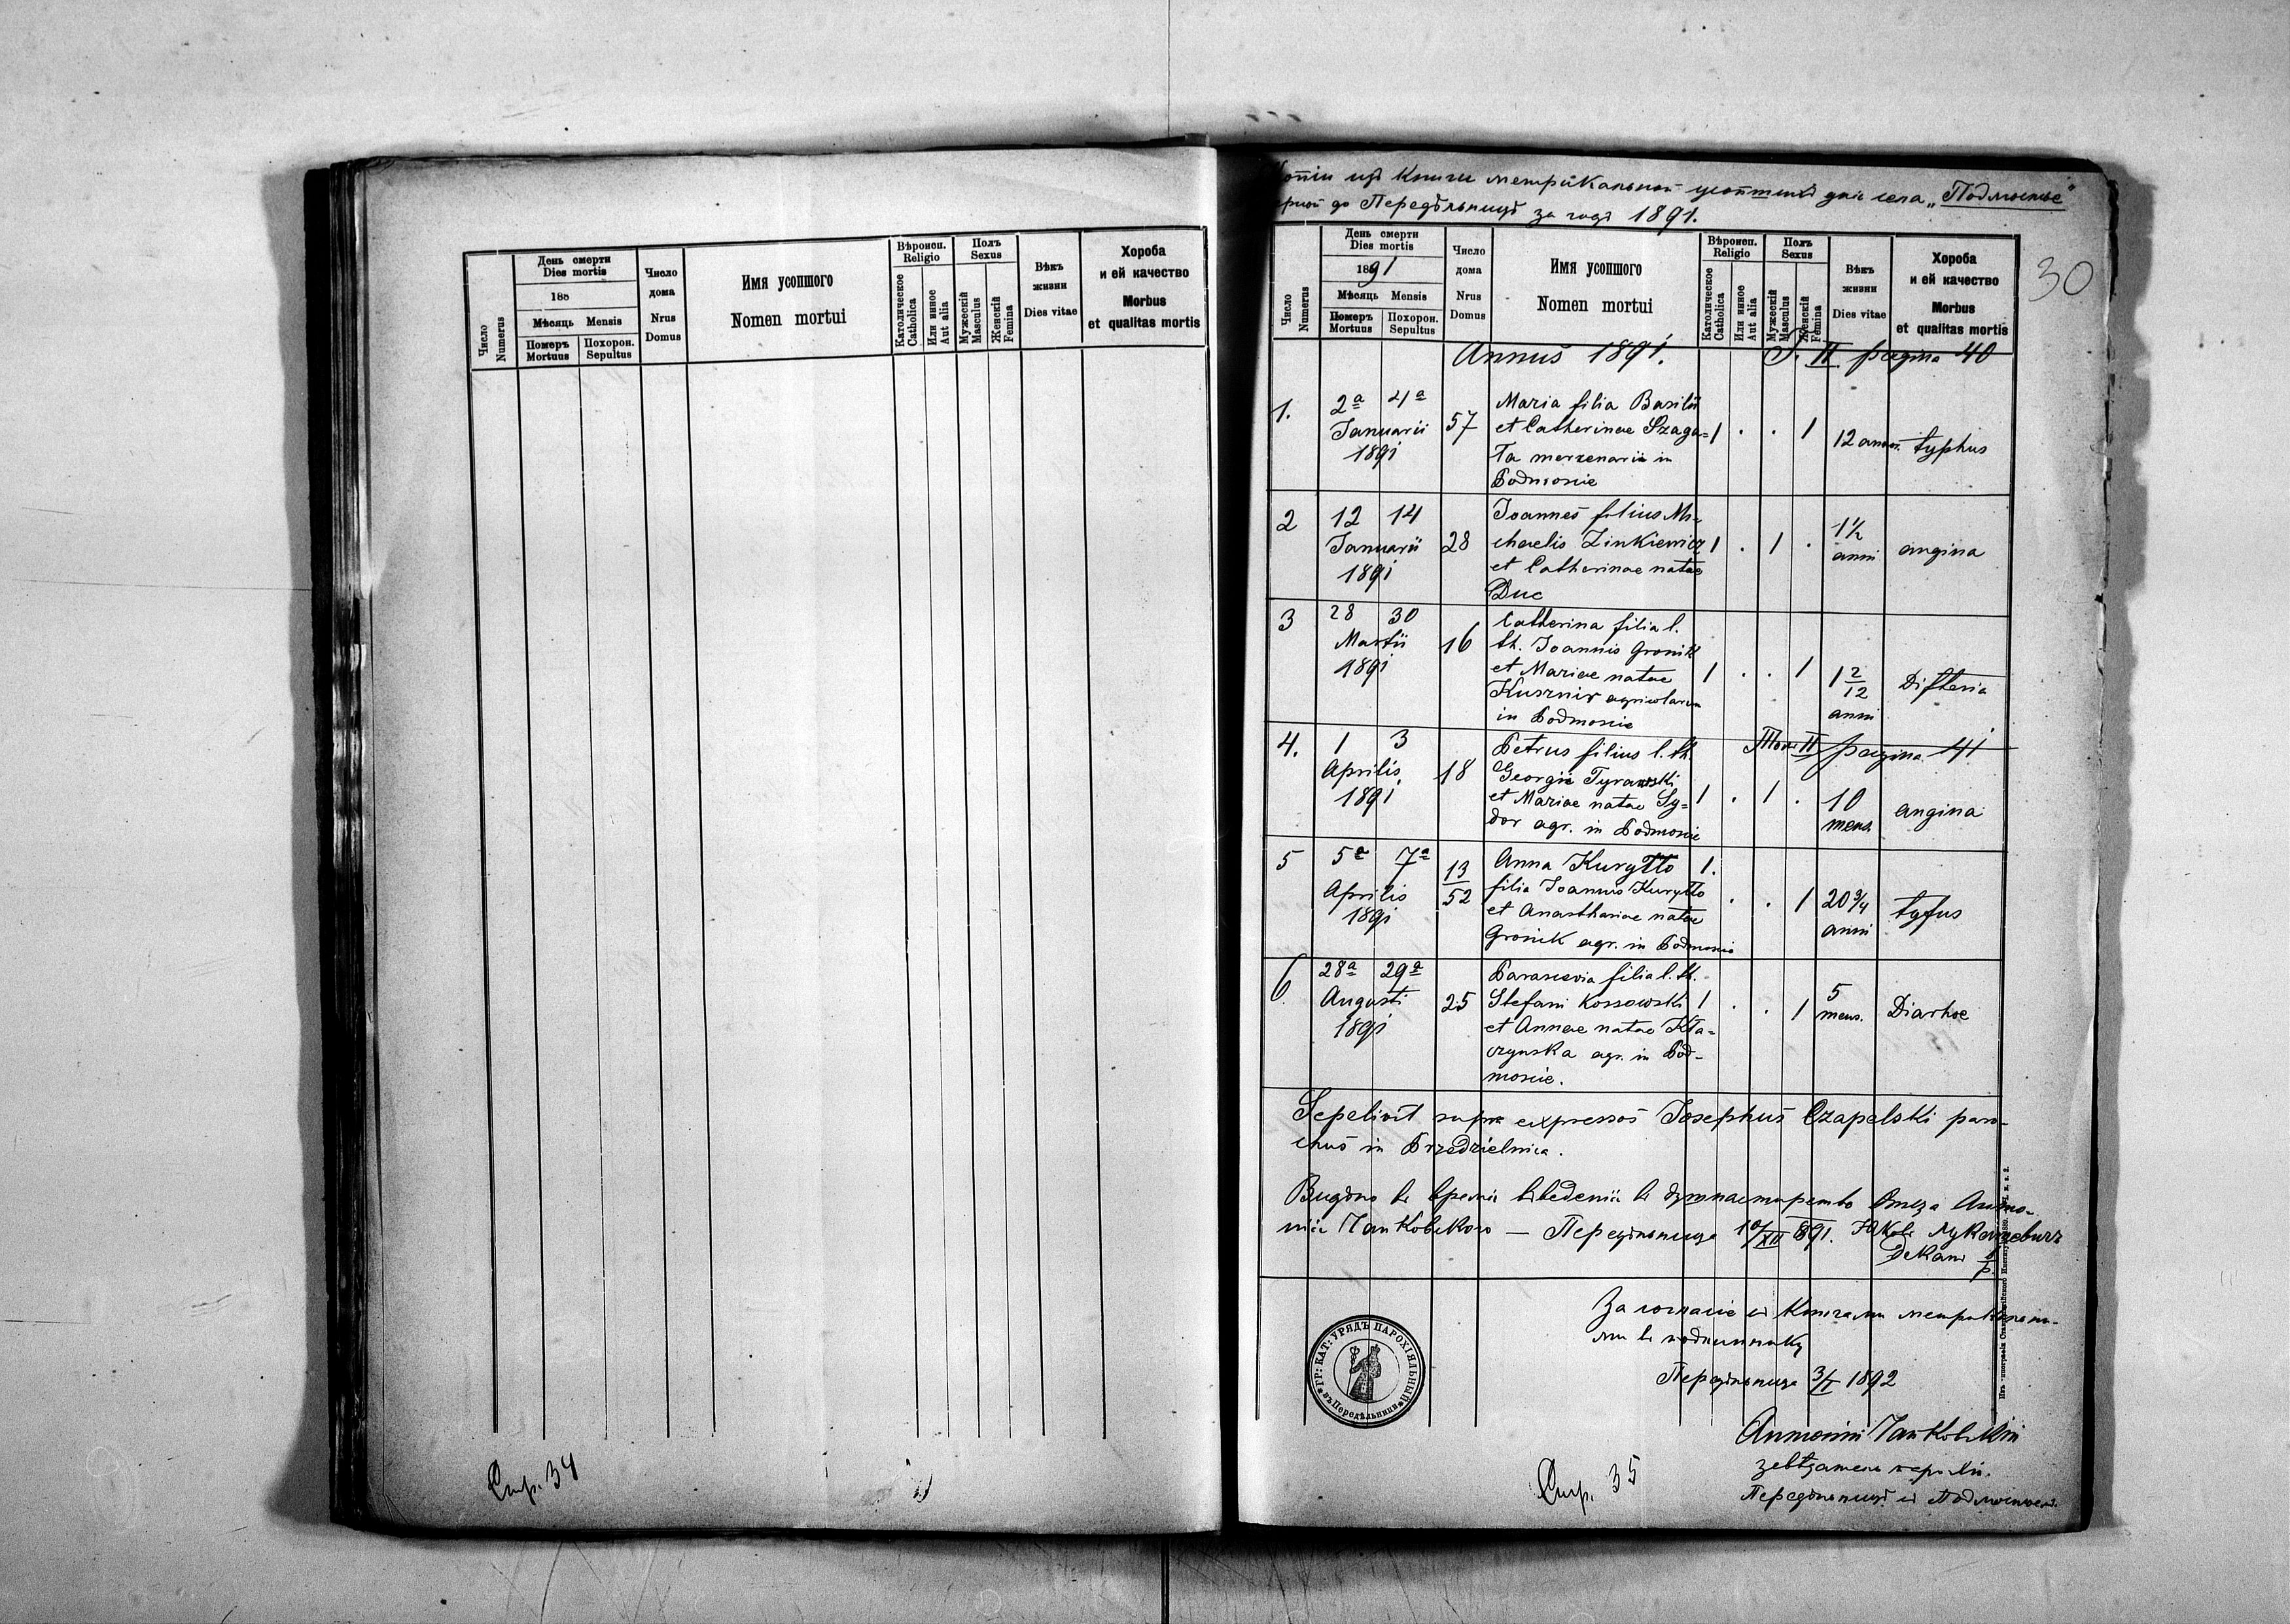 День смерти
Dies mortis
188
Мѣсяць Mensis
Померъ
Mortuus
Похорон.
Sepultus
Число
Numerus
Число
дома
Nrus
Domus
Имя усопшого
Nomen mortui
Вѣроисп.
Religio
Католическое
Catholica
Или инное
Aut alia
Полъ
Sexus
Мужескій
Masculus
Женскій
Femina
Вѣкъ
жизни
Dies vitae
Хороба
и ей качество
Morbus
et qualitas mortis
Стр. 34
Копіи изъ Книги метрикальной усопшихъ для села „Подмостье"
до Передѣльницѣ за годъ 1891.
30
Число
Numerus
День смерти
Dies mortis
1891
Мѣсяць Mensis
Померъ
Mortuus
Похорон.
Sepultus
Число
дома
Nrus
Domus
Имя усопшого
Nomen mortui
Вѣроисп.
Religio
Католическое
Catholica
Или инное
Aut alia
Полъ
Sexus
Мужескій
Masculus
Женскій
Femina
Вѣкъ
жизни
Dies vitae
Хороба
и ей качество
Morbus
et qualitas mortis
Annus 1891. T. II pagina 40
1. 2a 4a Januarii 1891 57
Maria filia Basilii
et Catherinae Szaga=
ła mercenarii in
Podmoście
1 . . 1 12 annor. typhus
2 12 14 Januarii 1891 28
Joannes filius Mi-
chaelis Zinkiewicz
et Catherinae natae
Duc
1 . 1 . 1½ anni angina
3 28 30 Martii 1891 16
Catherina filia l.
th. Joannis Gronik
et Mariae natae
Kusznir agricolarum
in Podmoście
1 . . 1 1 2/12 anni Difteria
Tom II pagina 41
4. 1 3 Aprilis 1891 18
Petrus filius l. th.
Georgii Tyrawski
et Mariae natae Sy=
dor agr. in Podmoście
1 . 1 . 10 mens. angina
5 5a 7a Aprilis 1891 13/52
Anna Kuryłło
filia Joannis Kuryłło
et Anasthasiae natae
Gronik agr. in Podmoście
1. . . 1 20¾ anni tyfus
6 28a 29a Augusti 1891 25
Parascevia filia l. th.
Stefani Kossowski
et Annae natae Kła=
czynska agr. in Pod-
moście.
1 . . 1 5 mens. Diarhoe
Sepelivit supra expressos Josephus Czapelski paro-
chus in Przedzielnica.
Видѣно въ время введенія въ душпастирство Отца Анто-
нія Чайковского — Передѣльница 10/XII 891.
Деканъ
За согласіе съ Книгами метрикальны-
ми въ подлиннику
Передѣльница 3/I 1892
ГР: КАТ: УРЯДЪ ПАРОХІЯЛЬНЫЙ
въ Передѣльници
Антоній Чайковскій
завѣдатель парохіи.
Передѣльницѣ и Подмостье.
Стр. 35